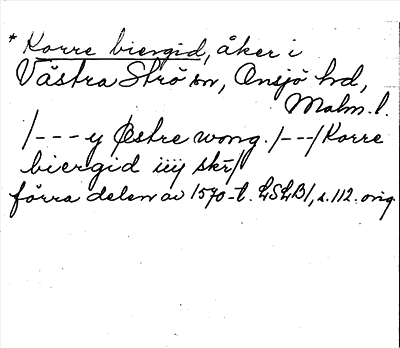 * Korre biergid, åker i
Västra Strö sn, Onsjö hd,
Malm. l.
/--- y Østre wong. /--/ Korre
biergid iiij skr̄/
förra delen av 1570-t. LSLB1, s. 112. orig.